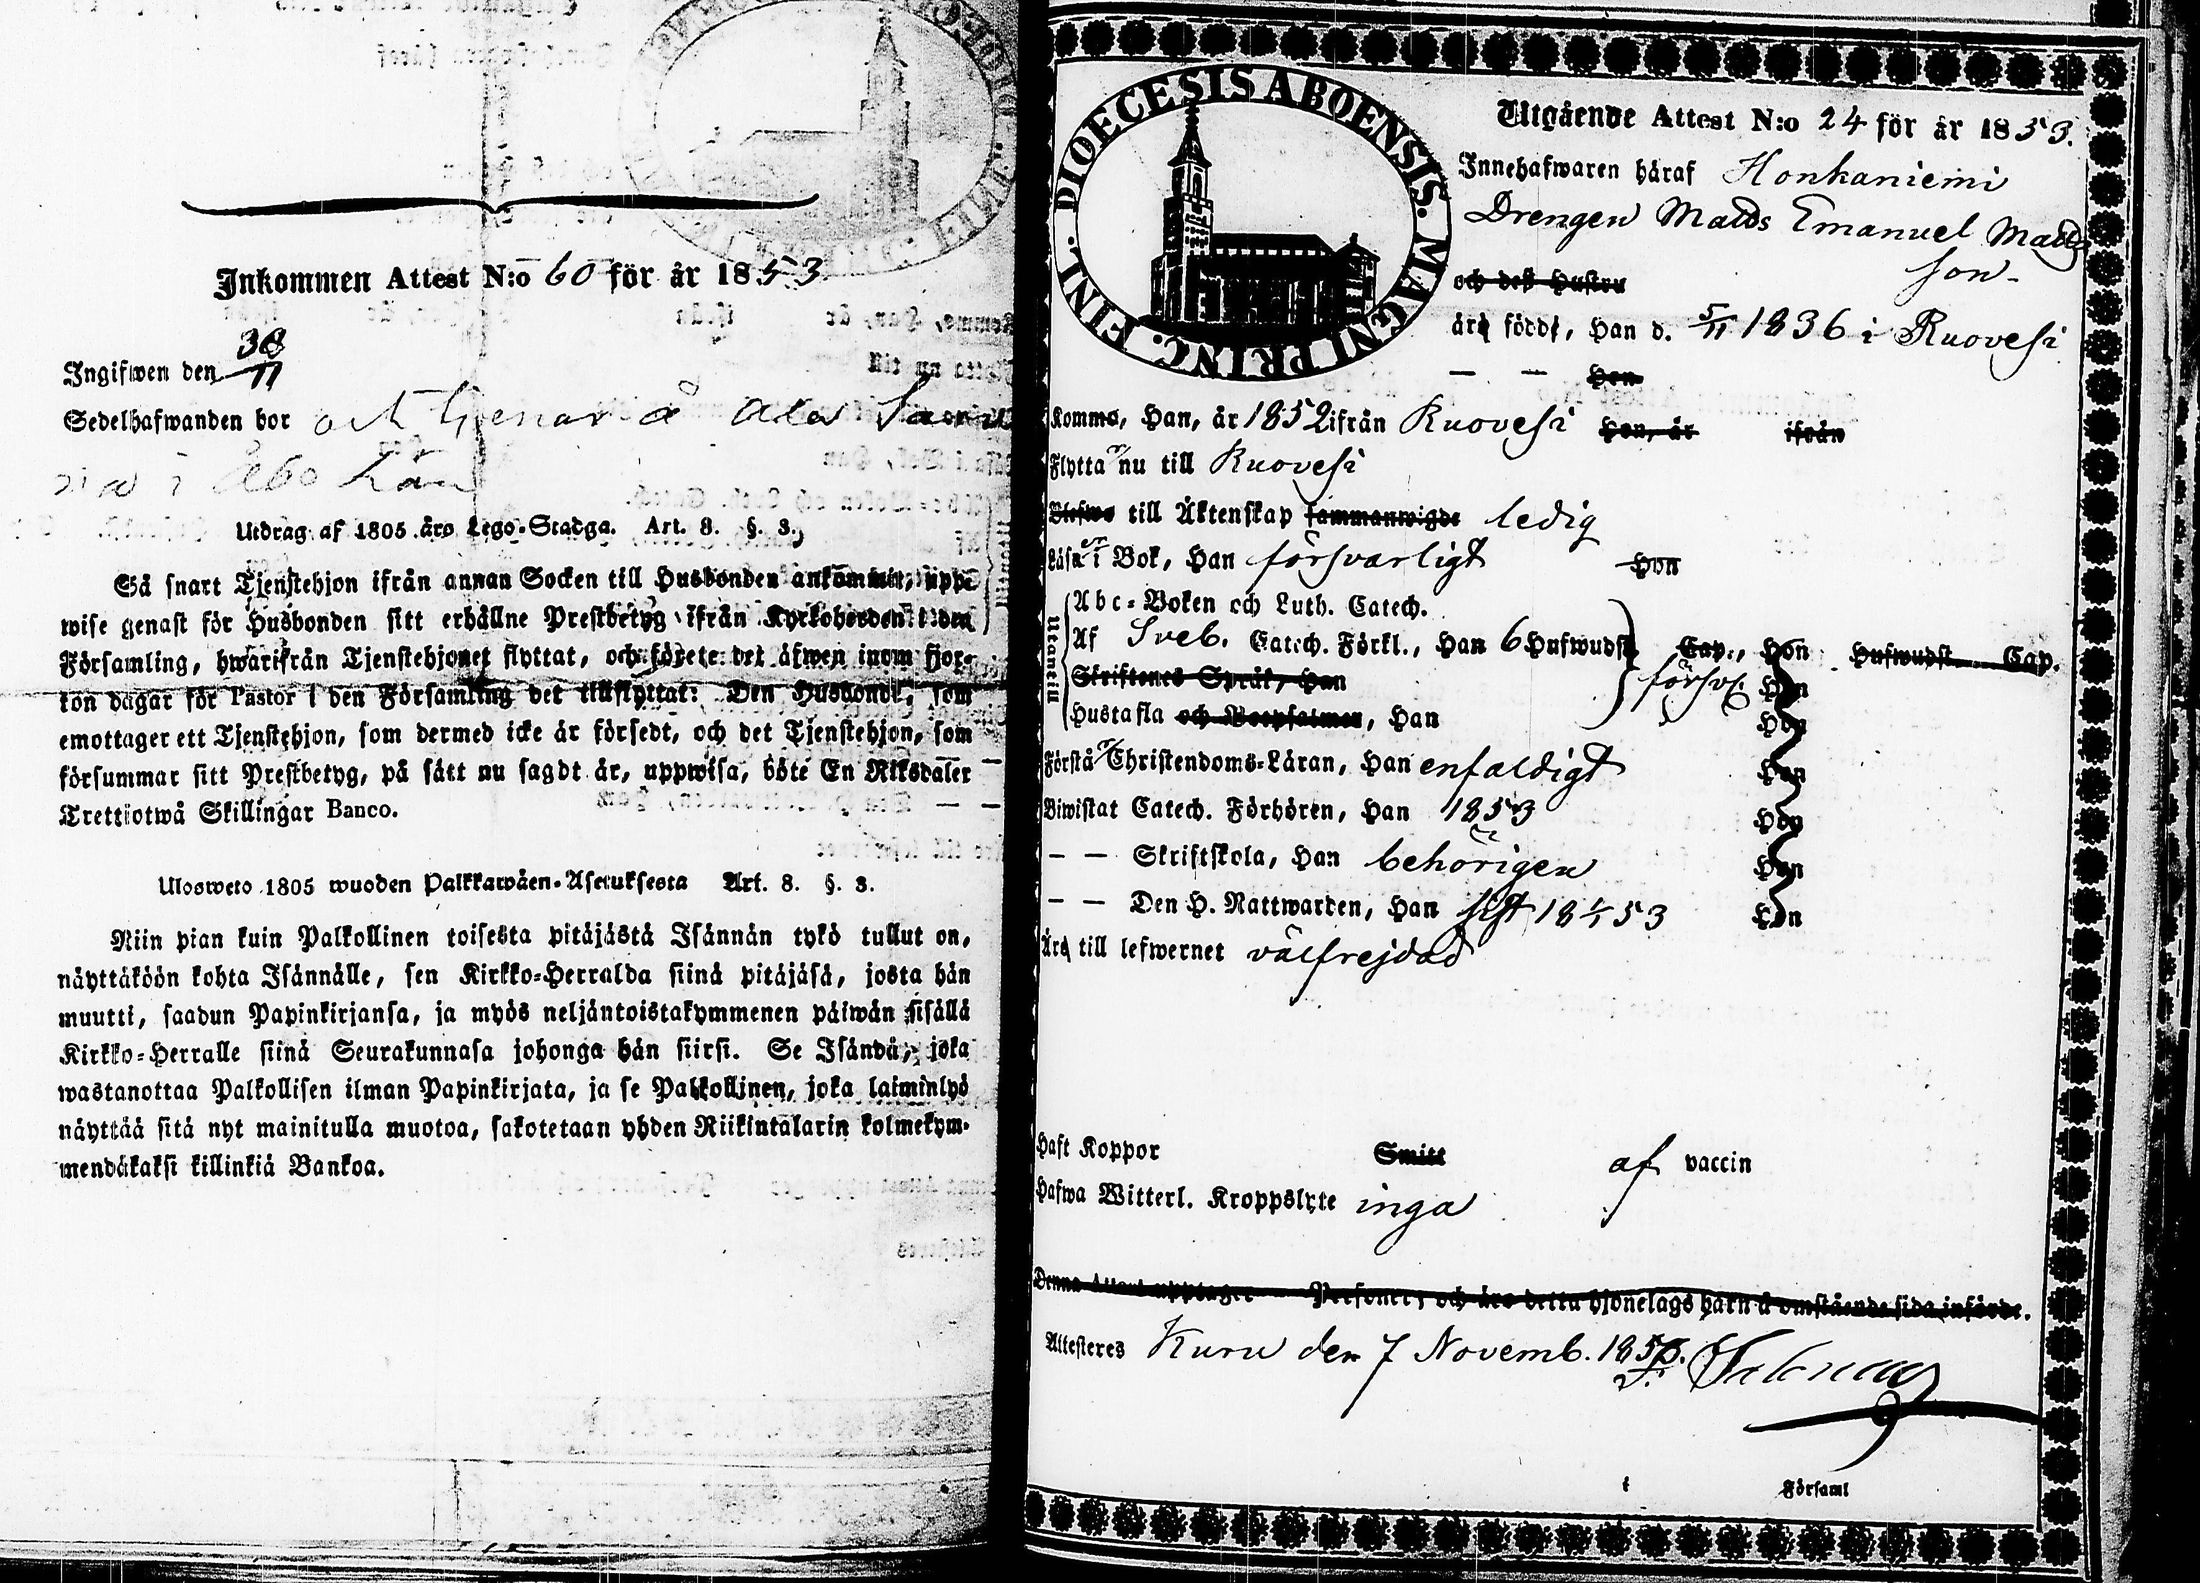 Inkommen Attest N:o 60 för år 1853
Ingifwen den 30/11
Sedelhafwanden bor och tjenar å Ala
i Åbo Län
Utdrag af 1805 års Lego-Stadga. Art. 8. §. 3.
Så snart Tjenstehjon ifrån annan Socken till Husbonden ankommit, uppe
wise genast för Husbonden sitt erhållne Prestbetyg ifrån Kyrkoherden i den
Församling, hwarifrån Tjenstehjonet flyttat, och förete det äfwen inom fjor-
ton dagar för Pastor i den Församling det tillflyttat: Den Husbonde, som
emottager ett Tjenstehjon, som dermed icke är försedt, och det Tjenstehjon, som
försummar sitt Prestbetyg, på sätt nu sagdt är, uppwisa, böte En Riksdaler
Trettiotwå Skillingar Banco.
Ulosweto 1805 wuoden Palkkawäen-Asetuksesta Art. 8. §. 3.
Niin pian kuin Palkollinen toisesta pitäjästä Isännän tykö tullut on,
näyttäköön kohta Isännälle, sen Kirkko-Herralda siinä pitäjäsä, josta hän
muutti, saadun Papinkirjansa, ja myös neljäntoistakymmenen päiwän sisällä
Kirkko-Herralle siinä Seurakunnasa johonga hän siirsi. Se Isändä, joka
wastanottaa Palkollisen ilman Papinkirjata, ja se Palkollinen, joka laiminlyö
näyttää sitä nyt mainitulla muotoa, sakotetaan yhden Riikintalarin kolmekym-
mendäkaksi killinkiä Bankoa.
DIOECESIS ABOENSIS. MAGNI PRINC. FINL.
Utgående Attest N:o 24 för år 1853.
Innehafwaren häraf Honkaniemi
Drengen Matts Emanuel Matts
son
och dess Hustru
äro födde, Han d. 5/11 1836 i Ruovesi
— — Hon
Komme, Han, år 1852 ifrån Ruovesi Hon, år ifrån
Flytta nu till Ruovesi
Blefwo till Äktenskap sammanwigde ledig
Läsa i Bok, Han försvarligt Hon
Utantill
Abc-Boken och Luth. Catech.
Af Sveb. Catech. Förkl., Han 6 Hufwudst. Cap., Hon Hufwudst. Cap.
Skriftenes Språk, Han försv. Hon
Hustafla och Botpsalmer, Han Hon
Förstå Christendoms-Läran, Han enfaldigt Hon
Biwistat Catech. Förhören, Han 1853 Hon
— — Skriftskola, Han behörigen Hon
— — Den H. Nattwarden, Han sist 18 53 Hon
Äro till lefwernet välfrejdad
Haft Koppor Smitt af vaccin
Hafwa Witterl. Kroppslyte inga
Denna Attest upptager Personer, och äro detta hjonelags barn å omstående sida införde.
Attesteres Kuru den 7 Novemb. 1853.
i Församl